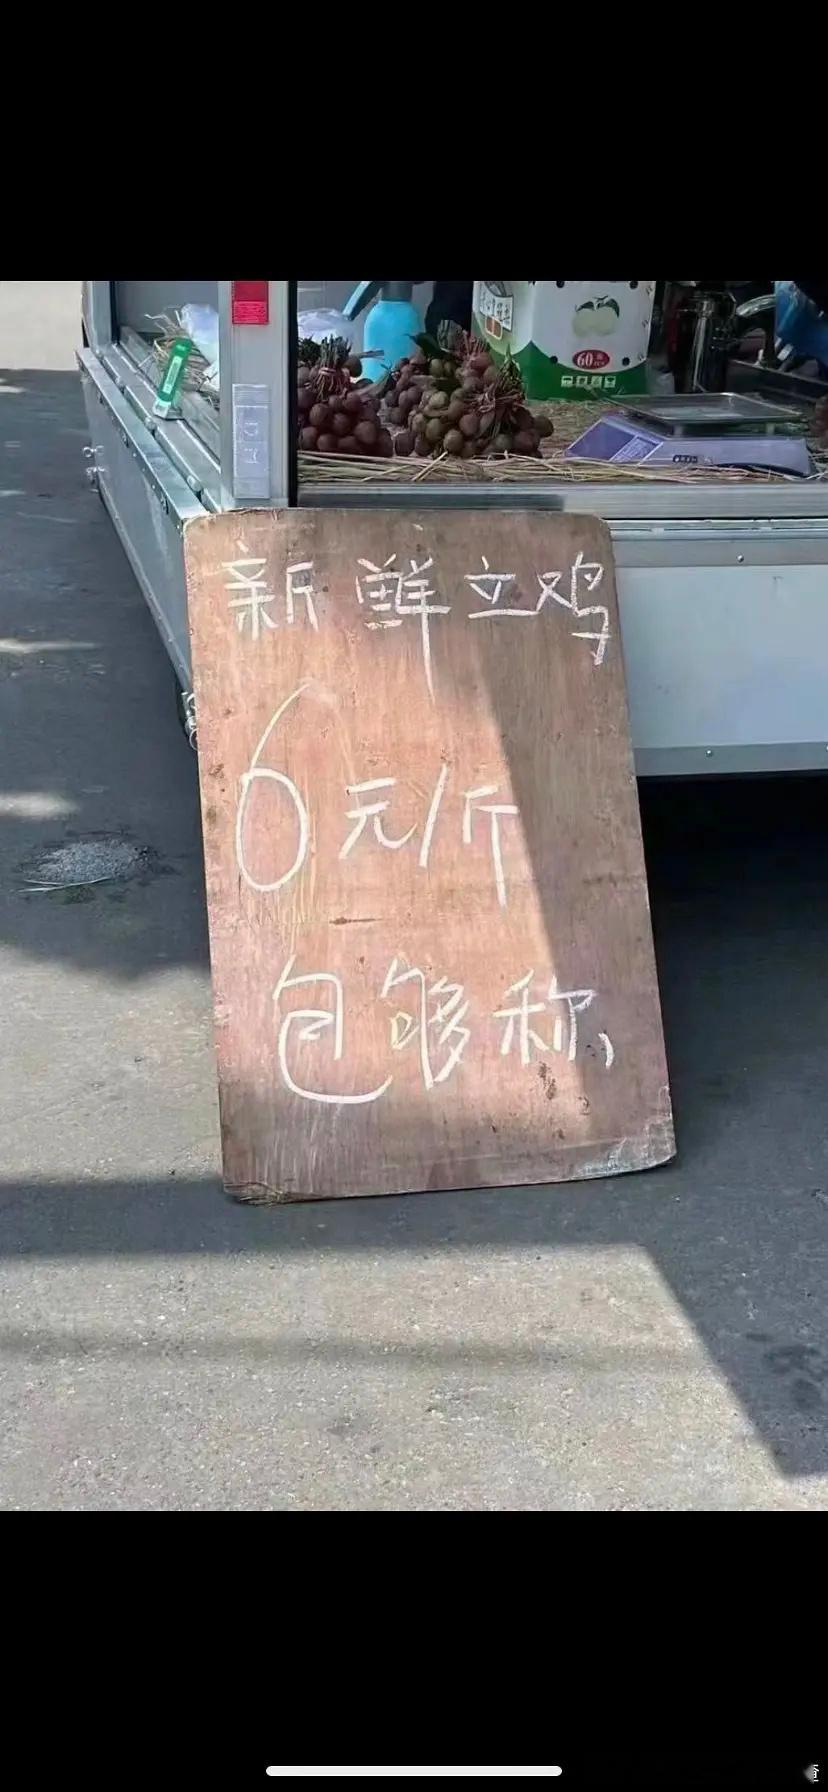 60
新鲜立鸡
6元/斤
包够称